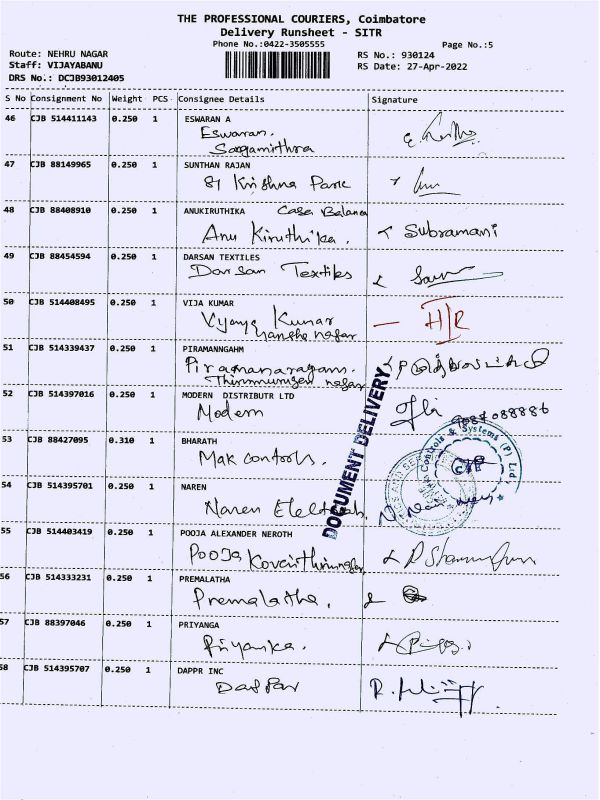 THE PROFESSIONAL COURIERS, Coimbatore
Delivery Runsheet - SITR
Phone No.:0422-3505555
Page No.:5
Route: NEHRU NAGAR
RS No.: 930124
Staff: VIJAYABANU
RS Date: 27-Apr-2022
DRS No.: DCJB93012405
S No Consignment No Weight PCS Consignee Details Signature
46 CJB 514411143 0.250 1 ESWARAN A
Eswaran.
Sangamithra
47 CJB 88149965 0.250 1 SUNTHAN RAJAN
81 Krishna Park
48 CJB 88408910 0.250 1 ANUKIRUTHIKA Casa Balance
Anu Kiruthika. Subramani
49 CJB 88454594 0.250 1 DARSAN TEXTILES
Darsan Textiles
50 CJB 514408495 0.250 1 VIJA KUMAR
Vijaya Kumar
nagar
— H/R
51 CJB 514339437 0.250 1 PIRAMANNGAHM
nagar
52 CJB 514397016 0.250 1 MODERN DISTRIBUTR LTD
Modern
DOCUMENT DELIVERY
53 CJB 88427095 0.310 1 BHARATH
Mak controls.
Controls & Systems (P) Ltd.
54 CJB 514395701 0.250 1 NAREN
Naren
55 CJB 514403419 0.250 1 POOJA ALEXANDER NEROTH
Pooja
56 CJB 514333231 0.250 1 PREMALATHA
Premalatha.
57 CJB 88397046 0.250 1 PRIYANGA
Priyanka.
58 CJB 514395707 0.250 1 DAPPR INC